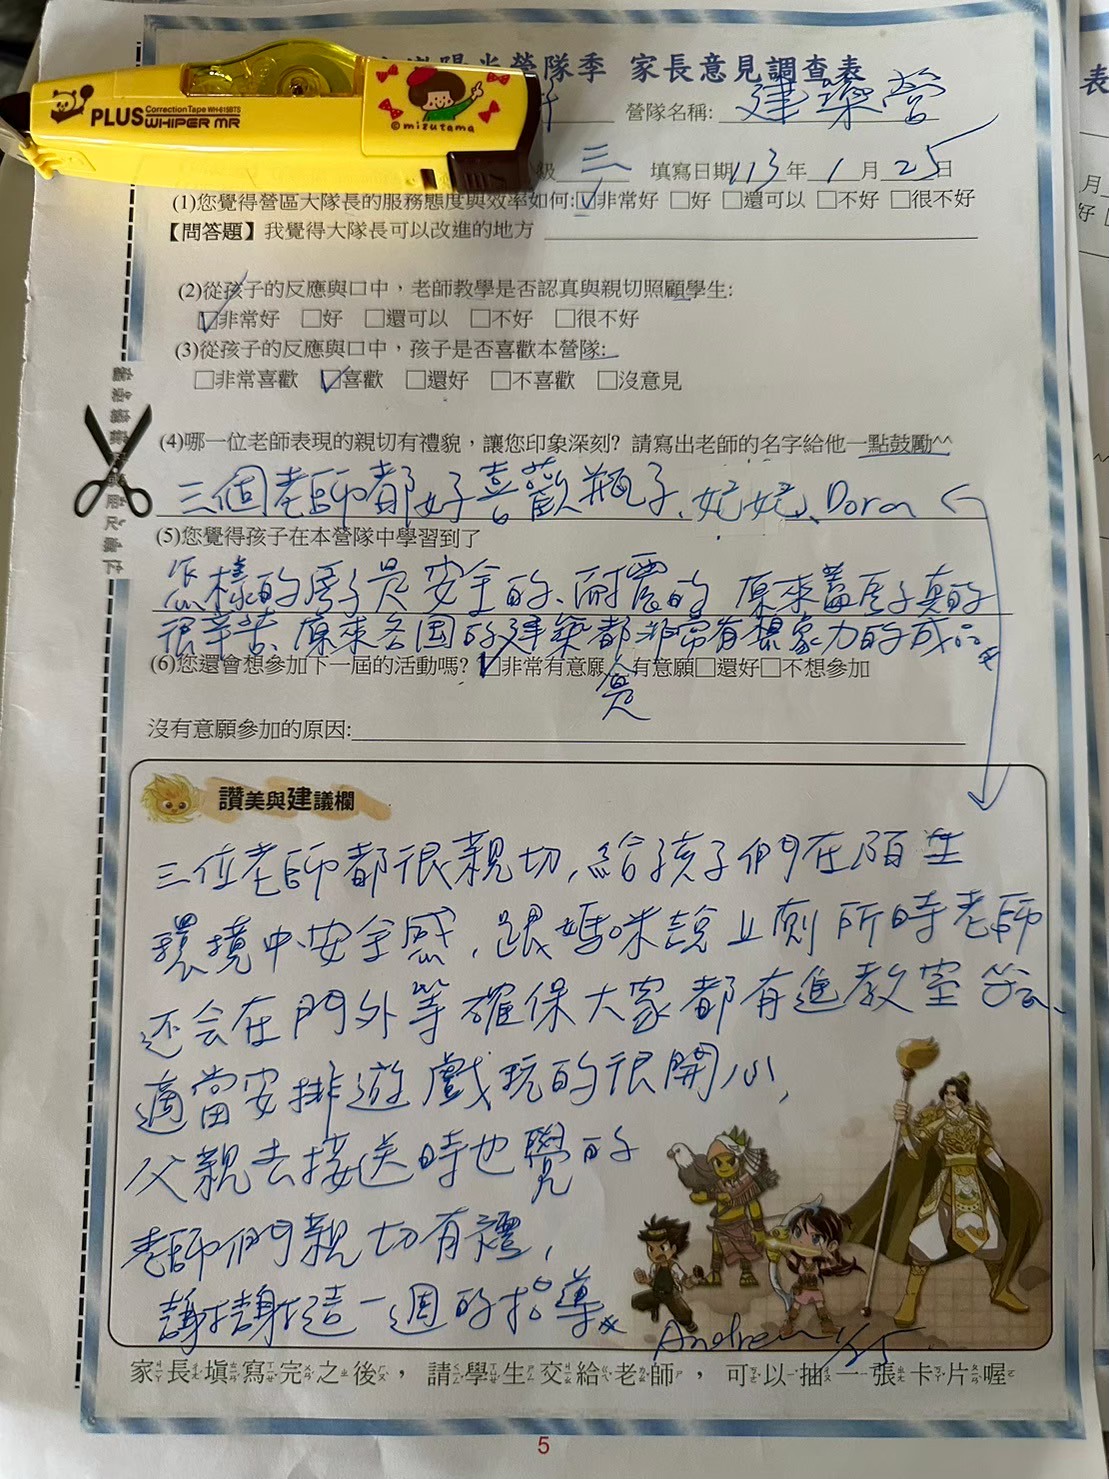 陽光營隊季 家長意見調查表
營隊名稱: 建築營
PLUS Correction Tape WH-615BTS
WHIPER MR
©mizutama
級 三 填寫日期 113 年 1 月 25 日
(1)您覺得營區大隊長的服務態度與效率如何:☑非常好 □好 □還可以 □不好 □很不好
【問答題】我覺得大隊長可以改進的地方
(2)從孩子的反應與口中，老師教學是否認真與親切照顧學生:
☑非常好 □好 □還可以 □不好 □很不好
(3)從孩子的反應與口中，孩子是否喜歡本營隊:
□非常喜歡 ☑喜歡 □還好 □不喜歡 □沒意見
(4)哪一位老師表現的親切有禮貌，讓您印象深刻? 請寫出老師的名字給他一點鼓勵^^
三個老師都好喜歡瓶子、妃妃、Dora
(5)您覺得孩子在本營隊中學習到了
怎樣的房子是安全的、耐震的 原來蓋房子真的
很辛苦、原來各國的建築都非常有想象力的成品
(6)您還會想參加下一屆的活動嗎? ☑非常有意願□有意願□還好□不想參加
沒有意願參加的原因:
讚美與建議欄
三位老師都很親切,給孩子們在陌生
環境中安全感,跟媽咪說上廁所時老師
还会在門外等確保大家都有進教室
適當安排遊戲玩的很開心,
父親去接送時也覺的
老師們親切有禮,
謝謝這一週的指導
Andrew 1/25
家長填寫完之後，請學生交給老師，可以抽一張卡片喔
5
表
月
好